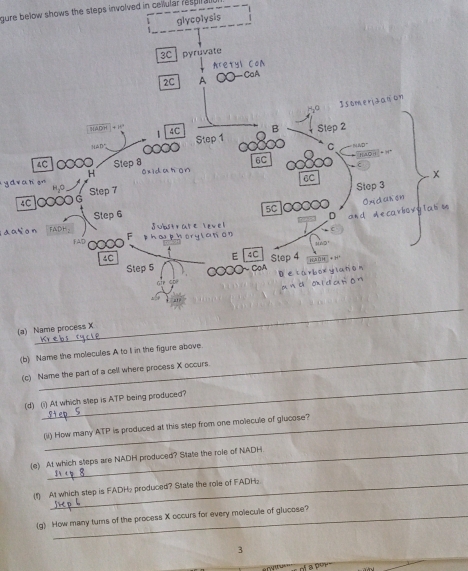 gure below shows the steps involved in cellular respiration
glycolysis
3C pyruvate
Acetyl CoA
2C A CoA
H₂O Isomerization
NADH + H⁺
I 4C Step 1 B Step 2
NAD⁺ C NAD⁺
NADH + H⁺
4C Step 8 6C
H oxidation 6C X
ydration H₂O Step 7 Step 3
4C G 5C Oxidation
Step 6 D and decarboxylation
dation FADH₂ Substrate level
FAD F phosphorylation NAD⁺
E 4C Step 4 NADH + H⁺
4C Step 5 CoA Decarboxylation
GTP GDP and oxidation
ADP ATP
(a) Name process X
Krebs cycle
(b) Name the molecules A to I in the figure above.
(c) Name the part of a cell where process X occurs.
(d) (i) At which step is ATP being produced?
Step 5
(ii) How many ATP is produced at this step from one molecule of glucose?
(e) At which steps are NADH produced? State the role of NADH.
Step 8
(f) At which step is FADH₂ produced? State the role of FADH₂
Step 6
(g) How many turns of the process X occurs for every molecule of glucose?
3
of a pop